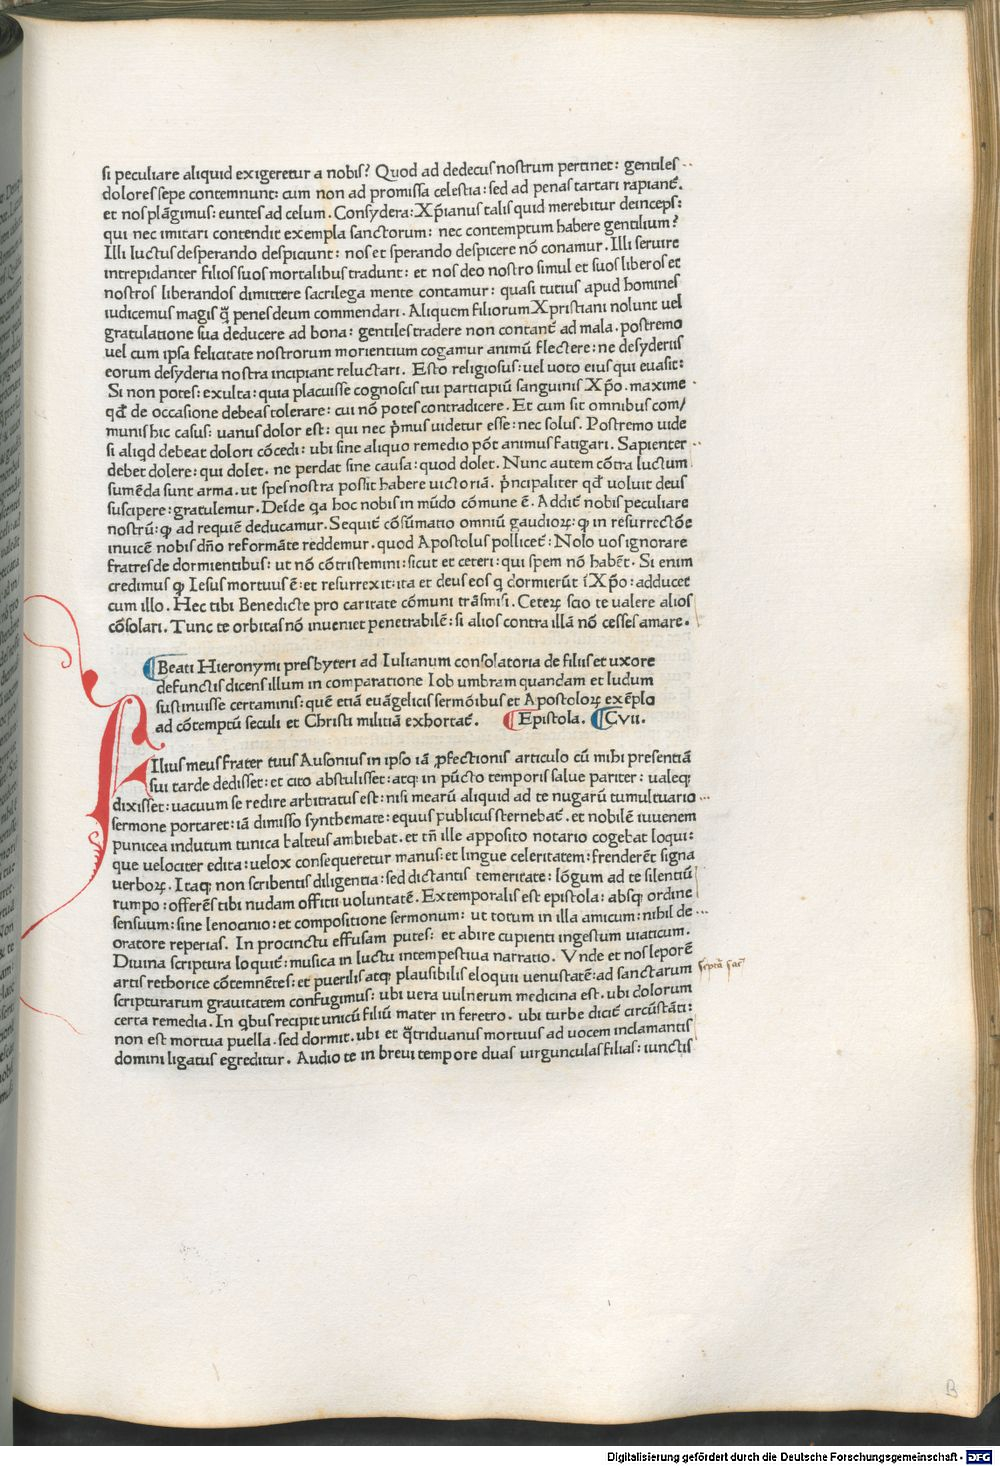 si peculiare aliquid exigeretur a nobis? Quod ad dedecus nostrum pertinet: gentiles
dolores sepe contemnunt: cum non ad promissa celestia: sed ad penas tartari rapianť.
et nos plãgimus: euntes ad celum. Consydera: Xp̄ianus talis quid merebitur deinceps:
qui nec imitari contendit exempla sanctorum: nec contemptum habere gentilium?
Illi luctus desperando despiciunt: nos et sperando despicere nõ conamur. Illi seruire
intrepidanter filios suos mortalibus tradunt: et nos deo nostro simul et suos liberos et
nostros liberandos dimittere sacrilega mente contamur: quasi tutius apud homines
iudicemus magis q̃ penes deum commendari. Aliquem filiorum Xpristiani nolunt uel
gratulatione sua deducere ad bona: gentiles tradere non contanť ad mala. postremo
uel cum ipsa felicitate nostrorum morientium cogamur animũ flectere: ne desyderiis
eorum desyderia nostra incipiant reluctari. Esto religiosus: uel uoto eius qui euasit:
Si non potes: exulta: quia placuisse cognoscis tui participiũ sanguinis Xp̄o. maxime
qđ de occasione debeas tolerare: cui nõ potes contradicere. Et cum sit omnibus com/
munis hic casus: uanus dolor est: qui nec p̃mus uidetur esse: nec solus. Postremo uide
si aliqd debeat dolori cõcedi: ubi sine aliquo remedio põt animus fatigari. Sapienter
debet dolere: qui dolet. ne perdat sine causa: quod dolet. Nunc autem cõtra luctum
sumẽda sunt arma. ut spes nostra possit habere uictoriã. p̃ncipaliter qđ uoluit deus
suscipere: gratulemur. Deĩde qa hoc nobis in mũdo cõmune ẽ. Addiť nobis peculiare
nostrũ: ꝙ ad requiẽ deducamur. Sequiť cõsũmatio omniũ gaudioꝝ: ꝙ in resurrectõe
inuicẽ nobis dño reformãte reddemur. quod Apostolus polliceť: Nolo uos ignorare
fratres de dormientibus: ut nõ cõtristemini: sicut et ceteri: qui spem nõ habẽt. Si enim
credimus ꝙ Iesus mortuus ẽ: et resurrexit: ita et deus eos q dormierũt ĩ Xp̄o: adducet
cum illo. Hec tibi Benedicte pro caritate cõmuni trãsmisi. Ceteꝝ scio te ualere alios
cõsolari. Tunc te orbitas nõ inueniet penetrabilẽ: si alios contra illã nõ cesses amare.
Beati Hieronymi presbyteri ad Iulianum consolatoria de filiis et uxore
defunctis dicens illum in comparatione Iob umbram quandam et ludum
sustinuisse certaminis: quẽ etiã euãgelicis sermõibus et Apostoloꝝ exẽplo
ad cõtemptũ seculi et Christi militiã exhortať. Epistola. Cvii.
Filius meus frater tuus Ausonius in ipso iã ꝓfectionis articulo cũ mihi presentiã
sui tarde dedisset: et cito abstulisset: atq; in pũcto temporis salue pariter: ualeq;
dixisset: uacuum se redire arbitratus est: nisi mearũ aliquid ad te nugarũ tumultuario
sermone portaret: iã dimisso synthemate: equus publicus sternebať. et nobilẽ iuuenem
punicea indutum tunica balteus ambiebat. et tñ ille apposito notario cogebat loqui:
que uelociter edita: uelox consequeretur manus: et lingue celeritatem: frenderẽt signa
uerboꝝ. Itaq; non scribentis diligentia: sed dictantis temeritate: lõgum ad te silentiũ
rumpo: offerẽs tibi nudam officii uoluntatẽ. Extemporalis est epistola: absq; ordine
sensuum: sine lenocinio: et compositione sermonum: ut totum in illa amicum: nihil de
oratore reperias. In procinctu effusam putes: et abire cupienti ingestum uiaticum.
Diuina scriptura loquiť: musica in luctu intempestiua narratio. Vnde et nos leporẽ
artis rethorice cõtemnẽtes: et puerilis atq; plausibilis eloquii uenustatẽ: ad sanctarum
scripturarum grauitatem confugimus: ubi uera uulnerum medicina est. ubi dolorum
certa remedia. In qbus recipit unicũ filiũ mater in feretro. ubi turbe diciť circũstãti:
non est mortua puella. sed dormit. ubi et q̃triduanus mortuus ad uocem inclamantis
domini ligatus egreditur. Audio te in breui tempore duas uirgunculas filias: iunctis
B
Digitalisierung gefördert durch die Deutsche Forschungsgemeinschaft - DFG